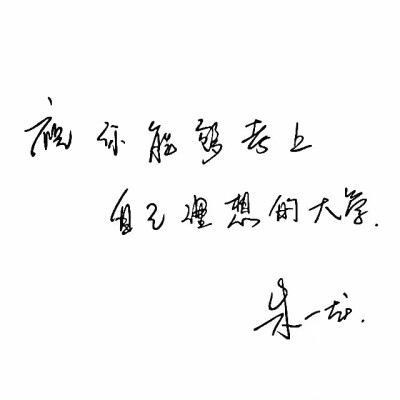 祝你能够考上
自己理想的大学.
朱一龙.